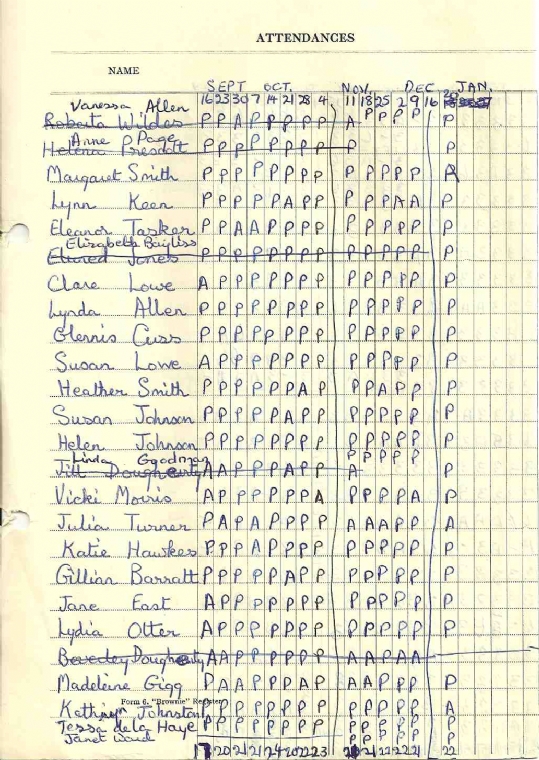 ATTENDANCES
NAME
SEPT OCT. NOV. DEC JAN.
16 23 30 7 14 21 28 4 11 18 25 2 9 16 20
Vanessa Allen
Roberta Wildes P P A P P P P P A P P P P P
Anne Page
Helena Prescott P P P P P P P P P P
Margaret Smith P P P P P P P P P P P P P
Lynn Keen P P P P P A P P P P P A A P
Eleanor Tasker P P A A P P P P P P P P P P
Elizabeth Bayliss
Eluned Jones P P P P P P P P P P P P P P
Clare Lowe A P P P P P P P P P P P P P
Lynda Allen P P P P P P P P P P P P P P
Glennis Cuss P P P P P P P P P P P P P P
Susan Lowe A P P P P P P P P P P P P P
Heather Smith P P P P P P A P P P A P P P
Susan Johnson P P P P P A P P P P P P P P
Helen Johnson P P P P P P P P P P P P P P
Linda Goodman P P P P P
Jill Dougherty A A P P P A P P A P
Vicki Morris A P P P P P P A P P P P A P
Julia Turner P A P A P P P P A A A P P A
Katie Hawkes P P P A P P P P P P P P P P
Gillian Barratt P P P P P A P P P P P P P P
Jane East A P P P P P P P P P P P P P
Lydia Otter A P P P P P P P P P P P P P
Beverley Dougherty A A P P P P P P A A P A A
Madeleine Gigg P A A P P P A P A A P P P P
Form 6. "Brownie" Register
Kathryn Johnston P P P P P P P P P P P P P A
Tessa de la Haye P P P P P P P P P P P P P P
Janet Ward P P P P P P
17 20 21 21 24 20 22 23 20 21 22 22 21 22